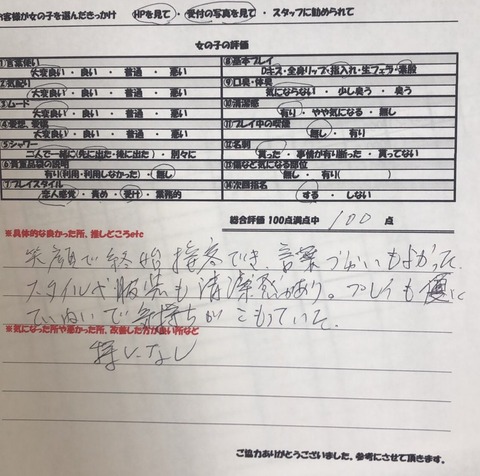 お客様が女の子を選んだきっかけ HPを見て・受付の写真を見て・スタッフに勧められて
女の子の評価
①言葉使い
大変良い・良い・普通・悪い
②気配り
大変良い・良い・普通・悪い
③ムード
大変良い・良い・普通・悪い
④愛想、愛嬌
大変良い・良い・普通・悪い
⑤シャワー
二人で一緒に(先に出た・後に出た)・別々に
⑥貴重品袋の説明
有り(利用・利用しなかった)・無し
⑦プレイスタイル
恋人感覚・責め・受け・業務的
⑧基本プレイ
Dキス・全身リップ・指入れ・生フェラ・素股
⑨口臭・体臭
気にならない・少し臭う・臭う
⑩清潔感
有り・やや気になる・無し
⑪プレイ中の喫煙
無し・有り
⑫名刺
貰った・事情が有り断った・貰ってない
⑬傷など気になる部位
無し・有り( )
⑭次回指名
する・しない
総合評価 100点満点中 100 点
※具体的な良かった所、推しどころetc
笑顔で終始接客でき、言葉づかいもよかった。
スタイルや服装も清潔感があり。プレイも
ていねいで気持ちがこもっていた。
※気になった所や悪かった所、改善した方が良い所など
特になし
ご協力ありがとうございました。参考にさせて頂きます。